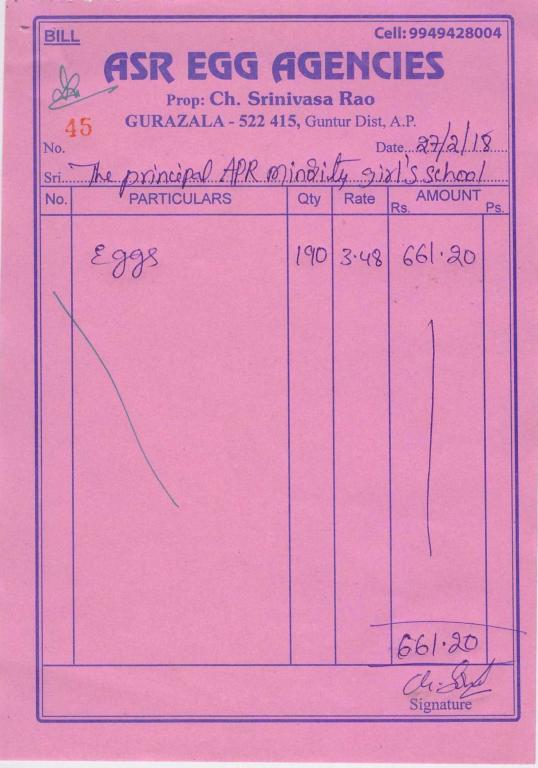 BILL
Cell: 9949428004
ASR EGG AGENCIES
Prop: Ch. Srinivasa Rao
GURAZALA - 522 415, Guntur Dist, A.P.
No. 45
Date 27/2/18
Sri The principal APR minority girl's school
No. PARTICULARS Qty Rate AMOUNT
Rs. Ps.
Eggs 190 3.48 661.20
661.20
Signature